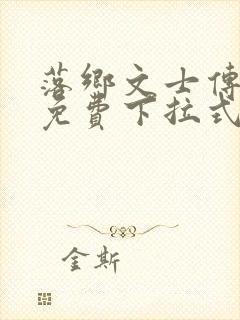 落鄉文士傳
免費下拉式
金斯